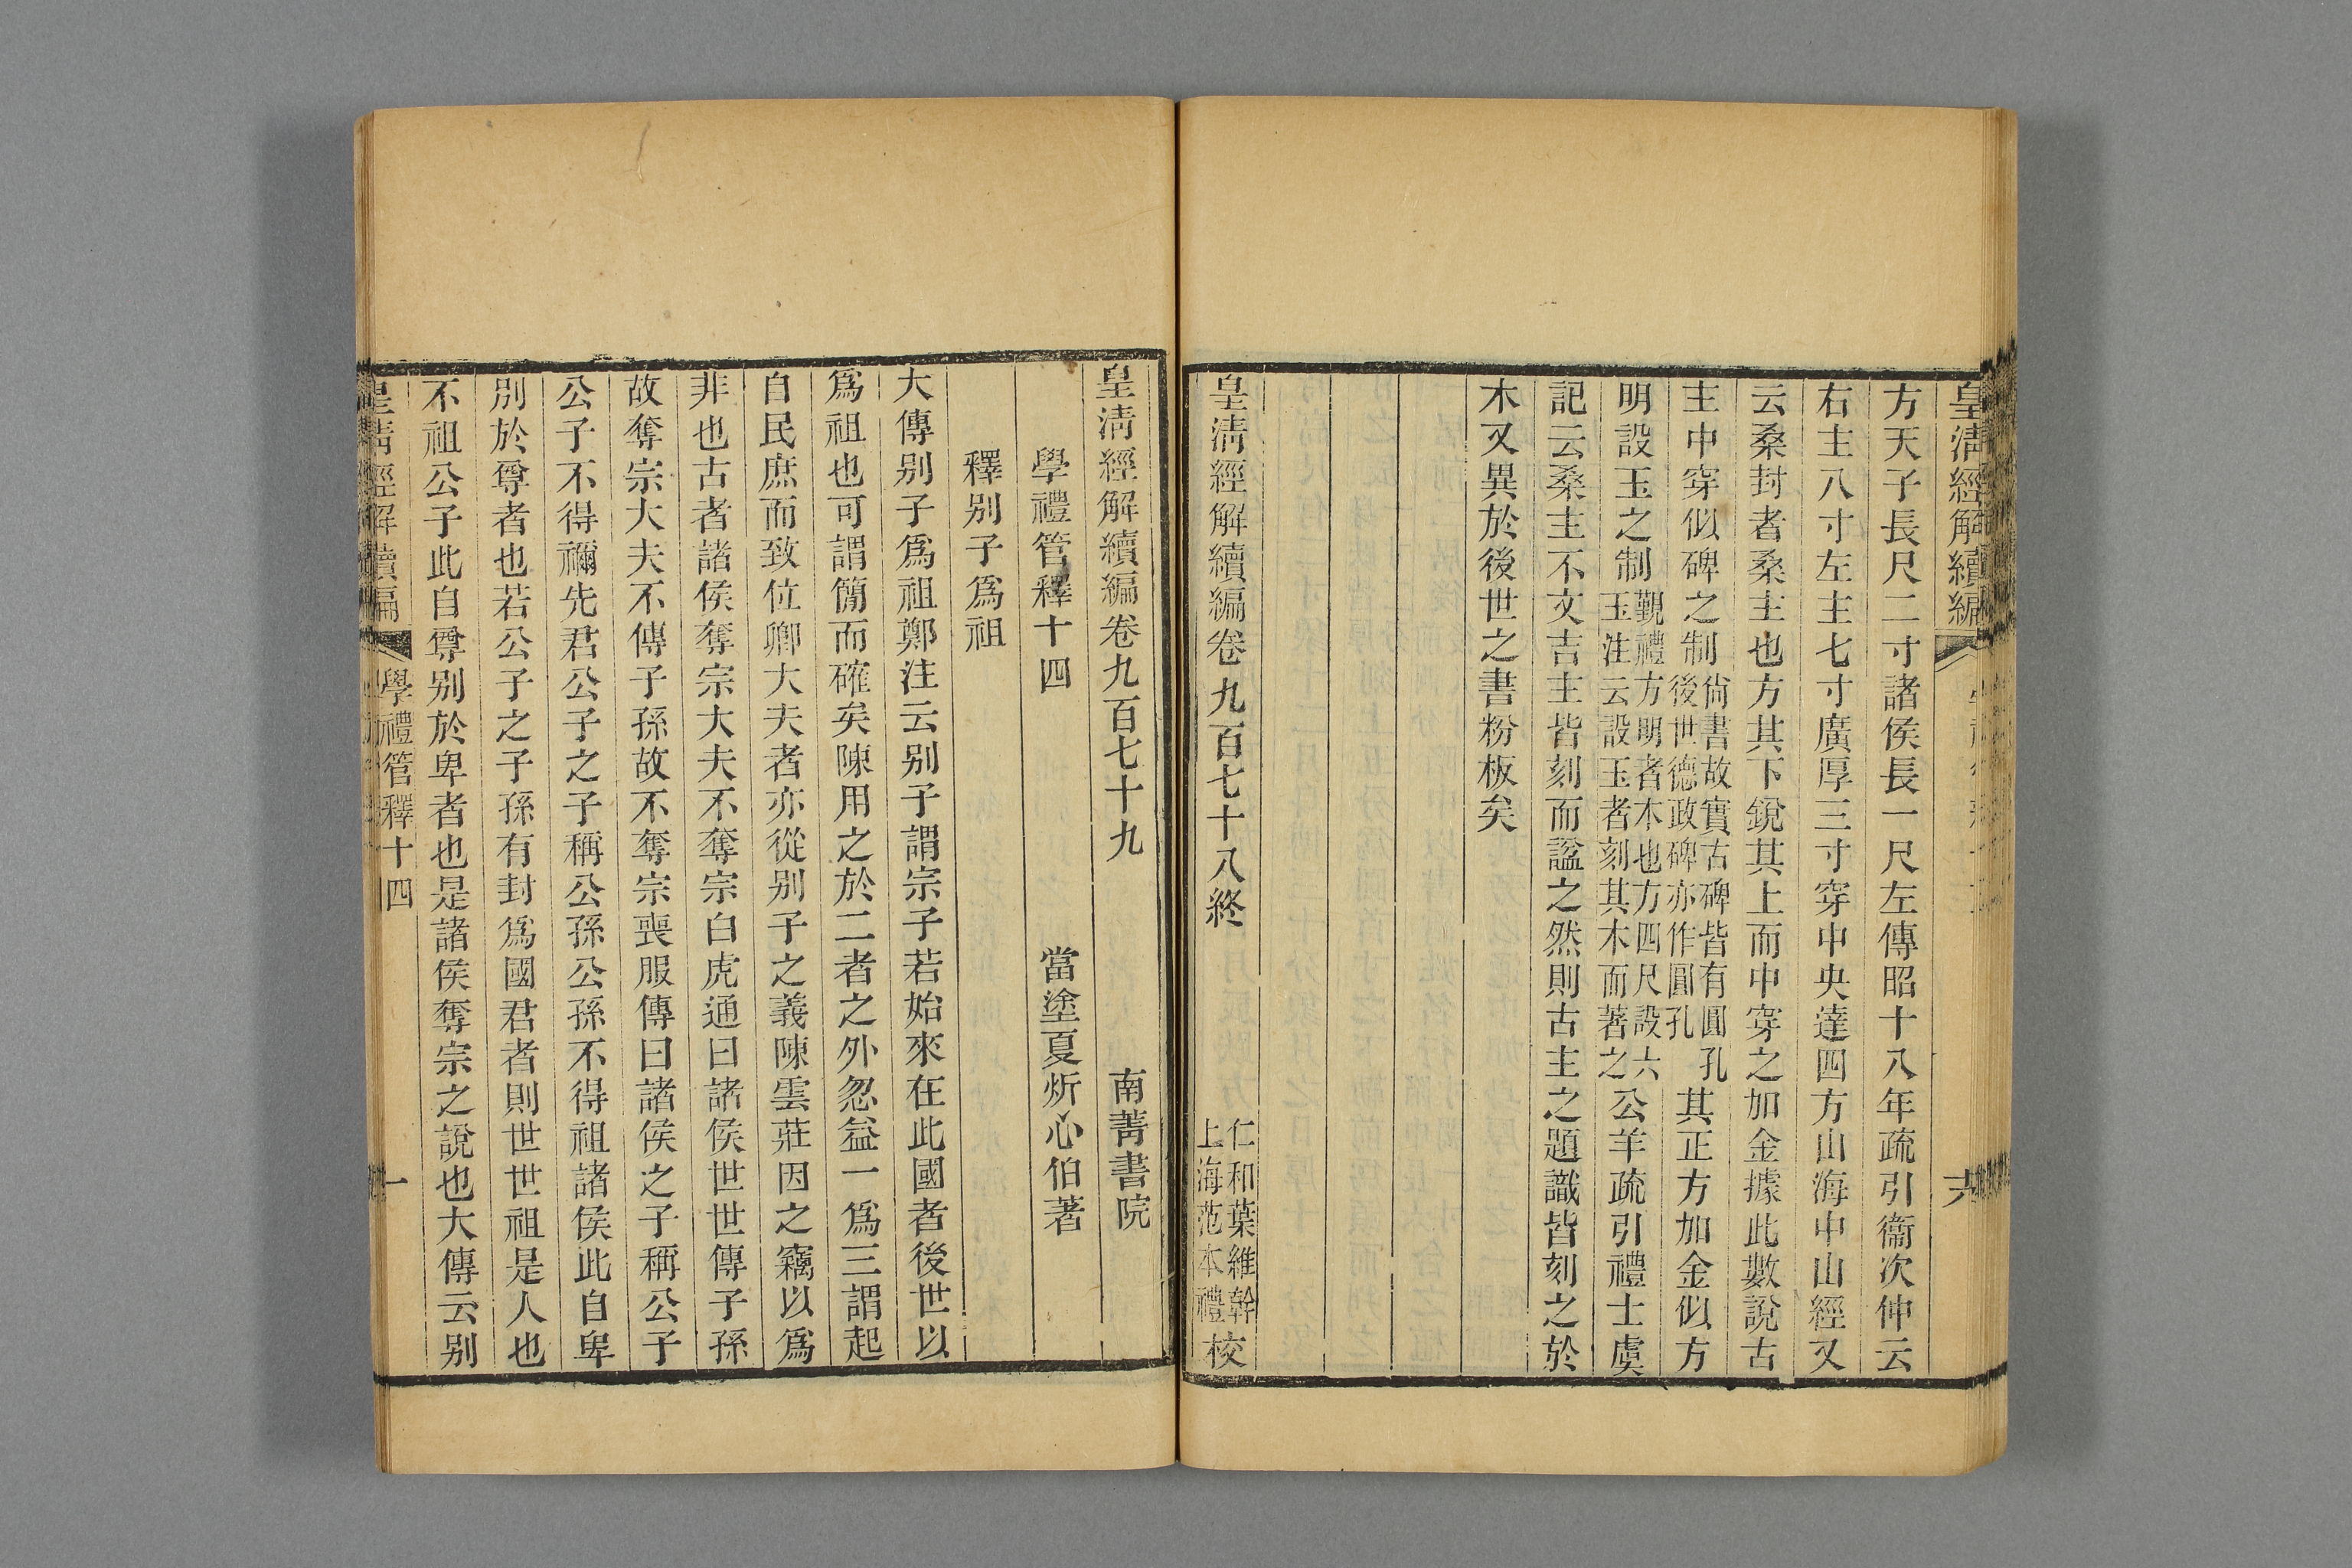 皇清經解續編
六
方天子長尺二寸諸侯長一尺左傳昭十八年疏引衞次仲云
右主八寸左主七寸廣厚三寸穿中央達四方山海中山經又
云桑封者桑主也方其下銳其上而中穿之加金據此數說古
主中穿似碑之制尙書故實古碑皆有圓孔後世德政碑亦作圓孔其正方加金似方
明設玉之制覲禮方明者木也方四尺設六玉注云設玉者刻其木而著之公羊疏引禮士虞
記云桑主不文吉主皆刻而諡之然則古主之題識皆刻之於
木又異於後世之書粉板矣
皇淸經解續編卷九百七十八終
仁和葉維幹
上海范本禮校
皇淸經解續編卷九百七十九
南菁書院
學禮管釋十四
當塗夏炘心伯著
釋别子爲祖
大傳别子爲祖鄭注云别子謂宗子若始來在此國者後世以
爲祖也可謂簡而確矣陳用之於二者之外忽益一爲三謂起
自民庶而致位卿大夫者亦從别子之義陳雲莊因之竊以爲
非也古者諸侯奪宗大夫不奪宗白虎通曰諸侯世世傳子孫
故奪宗大夫不傳子孫故不奪宗喪服傳曰諸侯之子稱公子
公子不得禰先君公子之子稱公孫公孫不得祖諸侯此自卑
别於尊者也若公子之子孫有封爲國君者則世世祖是人也
不祖公子此自尊别於卑者也是諸侯奪宗之說也大傳云别
皇淸經解續編
學禮管釋十四
一